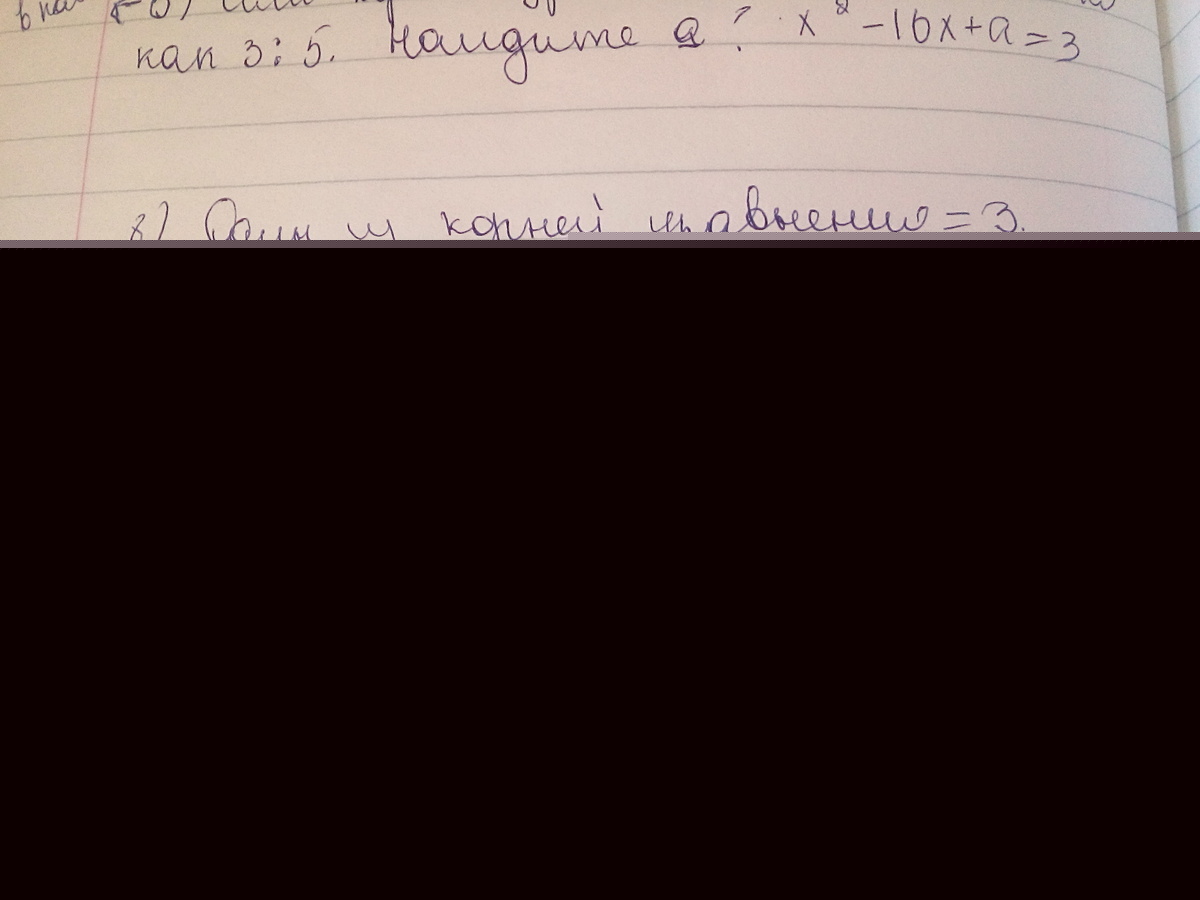 как 3:5. Найдите а? x² -16x+a=3
в) Один из корней уравнению = 3.